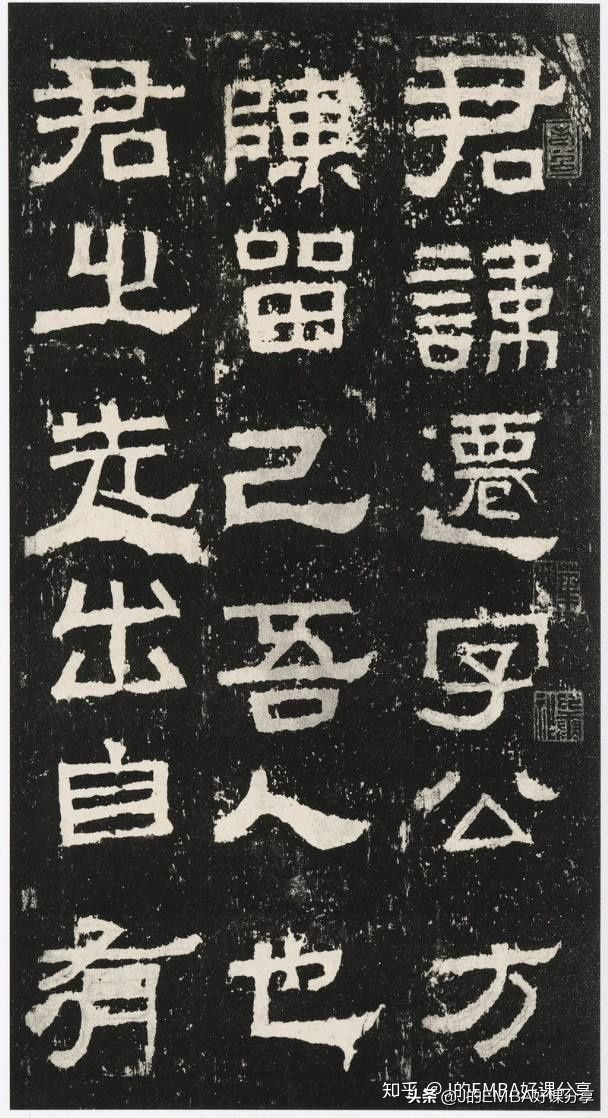 君諱遷字公方
陳留己吾人也
君之先出自有
知乎 @J的EMBA好课分享
头条 @J的EMBA好课分享